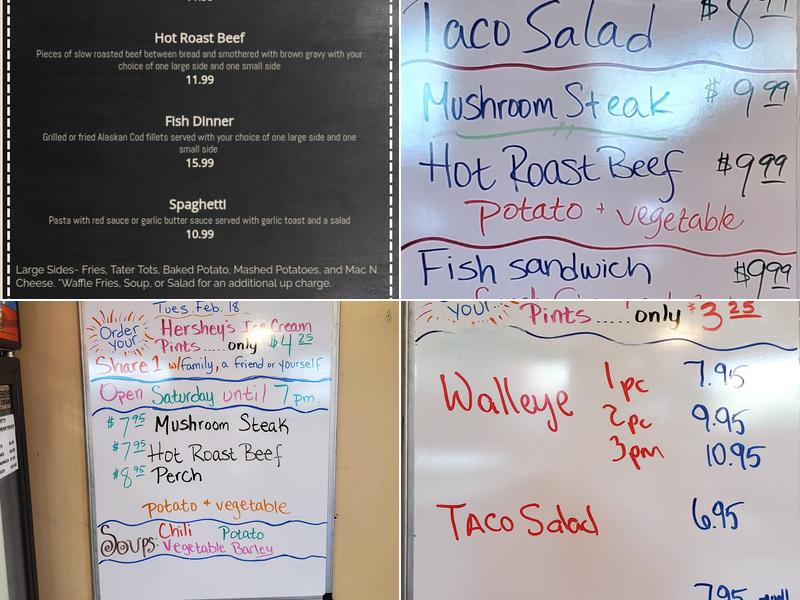 Hot Roast Beef
Pieces of slow roasted beef between bread and smothered with brown gravy with your
choice of one large side and one small side
11.99
Fish Dinner
Grilled or fried Alaskan Cod fillets served with your choice of one large side and one
small side
15.99
Spaghetti
Pasta with red sauce or garlic butter sauce served with garlic toast and a salad
10.99
Large Sides~ Fries, Tater Tots, Baked Potato, Mashed Potatoes, and Mac N
Cheese. *Waffle Fries, Soup, or Salad for an additional up charge.
Taco Salad $8
Mushroom Steak $9.99
Hot Roast Beef $9.99
Potato + vegetable
Fish sandwich $9.99
Tues. Feb. 18
Order your Hershey's Ice Cream
Pints.....only $4.25
Share 1 w/family, a friend or yourself.
Open Saturday until 7 pm.
$7.95 Mushroom Steak
$7.95 Hot Roast Beef
$8.95 Perch
potato + vegetable
Soups: Chili Potato
Vegetable Barley
your Pints.....only $3.25
Walleye 1pc 7.95
2pc 9.95
3pm 10.95
Taco Salad 6.95
7.95